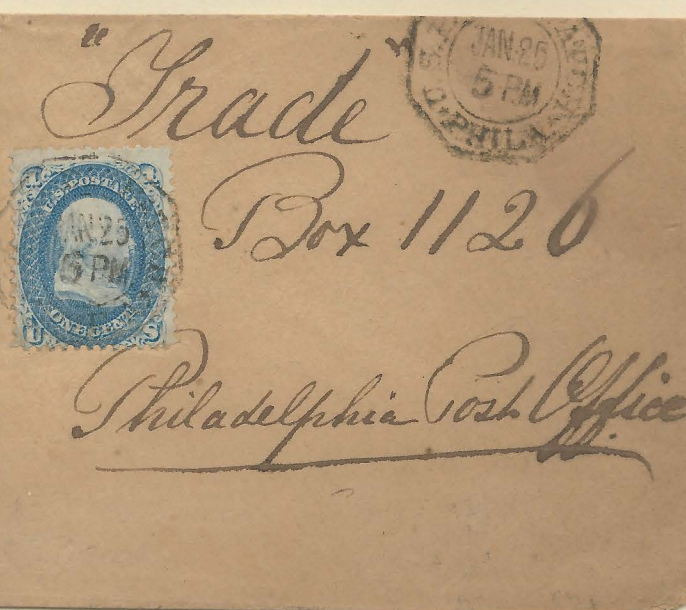 "Trade"
JAN 25
5 PM
PHILA
U.S. POSTAGE
JAN 25
5 PM
ONE CENT
Box 1126
Philadelphia Post Office